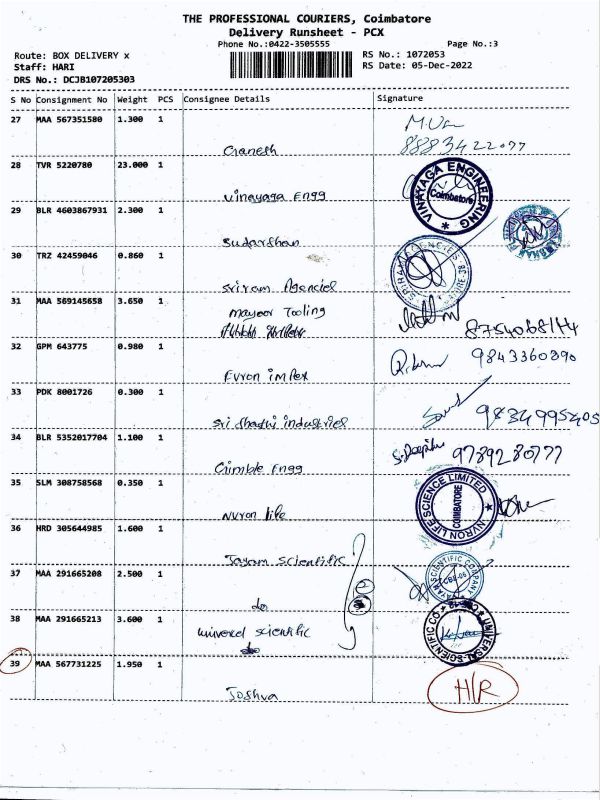 THE PROFESSIONAL COURIERS, Coimbatore
Delivery Runsheet - PCX
Phone No.:0422-3505555 Page No.:3
Route: BOX DELIVERY x RS No.: 1072053
Staff: HARI RS Date: 05-Dec-2022
DRS No.: DCJB107205303
S No Consignment No Weight PCS Consignee Details Signature
27 MAA 567351580 1.300 1
Ganesh 8883422077
28 TVR 5220780 23.000 1
Vinayaga Engg VINAYAGA ENGINEERING Coimbatore
29 BLR 4603867931 2.300 1
Sudarshan
30 TRZ 42459046 0.860 1
Sriram Agencies
31 MAA 569145658 3.650 1
Mayoor Tooling
8754068144
32 GPM 643775 0.980 1
Evron impex 9843360390
33 PDK 8001726 0.300 1
Sri Shasthi industries 9834995405
34 BLR 5352017704 1.100 1
Gimble Engg S.Deepika 9789280777
35 SLM 308758568 0.350 1
Nvron life NVRON LIFE SCIENCE LIMITED COIMBATORE
36 HRD 305644985 1.600 1
Jayam Scientific
37 MAA 291665208 2.500 1
do SCIENTIFIC COMPANY
38 MAA 291665213 3.600 1
Universel scientific UNIVERSAL SCIENTIFIC CO
do
39 MAA 567731225 1.950 1
Joshva H/R